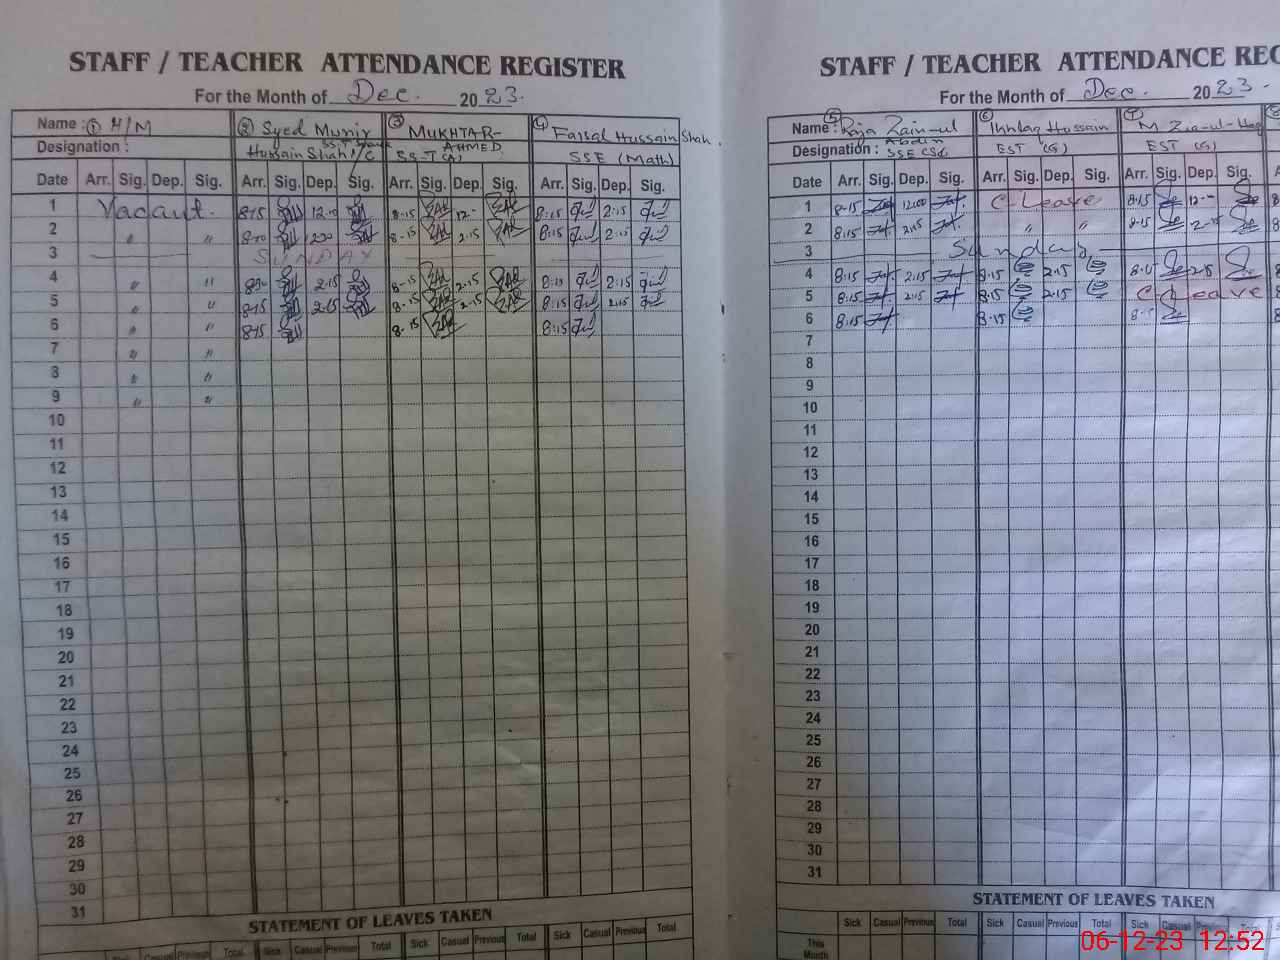 STAFF / TEACHER ATTENDANCE REGISTER
For the Month of Dec. 2023.
Name : ① H/M ② Syed Munir ③ MUKHTAR- ④ Faisal Hussain Shah.
Designation : Hussain Shah I/C AHMED SSE (Math)
Date Arr. Sig. Dep. Sig. Arr. Sig. Dep. Sig. Arr. Sig. Dep. Sig. Arr. Sig. Dep. Sig.
1 Vacant. 8-15 12.0 8-15 12- 8:15 2:15
2 " " 8-10 1200 8-15 2.15 8:15 2:15
3 SUNDAY
4 " " 2.15 8-15 2.15 8:15 2:15
5 " " 8-15 2.15 8-15 2.15 8:15 2:15
6 " " 8-15 8-15 8:15
7 " "
8 " "
9 " "
10
11
12
13
14
15
16
17
18
19
20
21
22
23
24
25
26
27
28
29
30
31
STATEMENT OF LEAVES TAKEN
Sick Casual Previous Total Sick Casual Previous Total Sick Casual Previous Total Sick Casual Previous Total
STAFF / TEACHER ATTENDANCE REG
For the Month of Dec. 2023.
Name : ⑤ Raja Zain-ul ⑥ Ikhlaq Hussain ⑦ M Zia-ul-Haq
Designation : Abdin SSE (Sc) EST (G) EST (G)
Date Arr. Sig. Dep. Sig. Arr. Sig. Dep. Sig. Arr. Sig. Dep. Sig.
1 8-15 1200 C Leave 8-15 12-
2 8:15 2.15 " " 8-15 2-15
3 Sunday
4 8:15 2.15 8.15 2.15 8-15 2.15
5 8:15 2.15 8.15 2.15 C Leave
6 8:15 8.15 8-15
7
8
9
10
11
12
13
14
15
16
17
18
19
20
21
22
23
24
25
26
27
28
29
30
31
STATEMENT OF LEAVES TAKEN
Sick Casual Previous Total Sick Casual Previous Total Sick Casual Previous Total
This Month
06-12-23 12:52